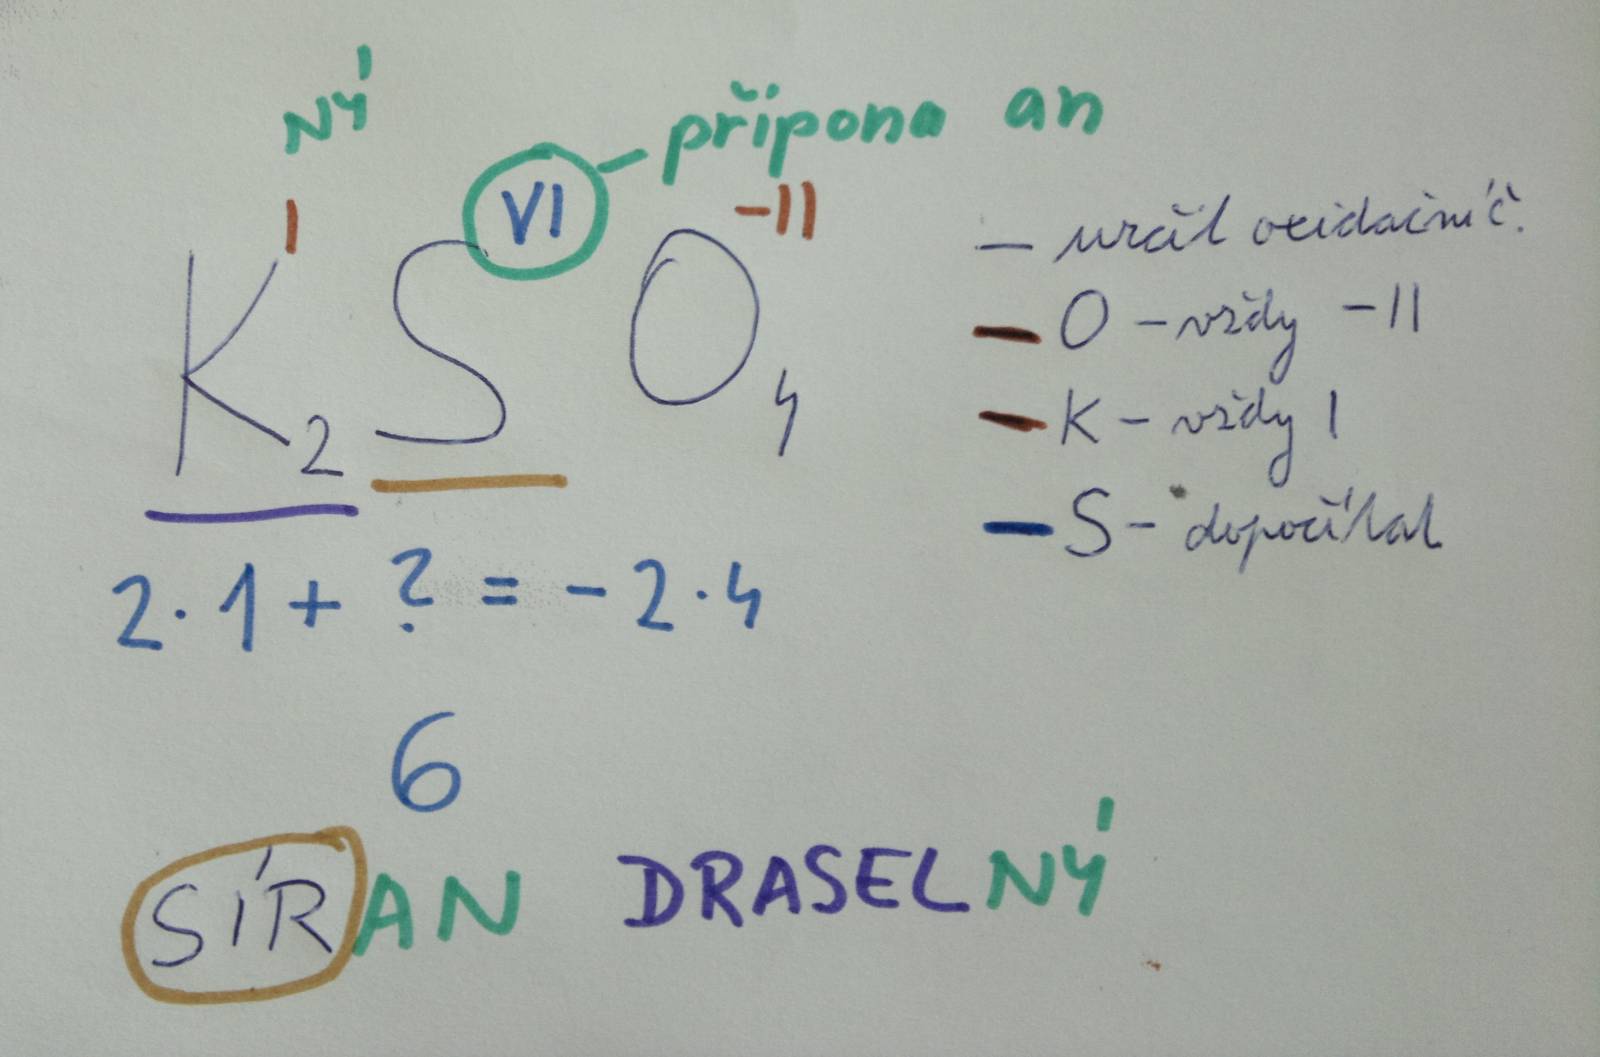 NÝ
přípona an
I VI -II
K2SO4
– určit oxidační č.
O – vždy -II
K – vždy I
S – dopočítat
2·1 + ? = -2·4
6
SÍRAN DRASELNÝ